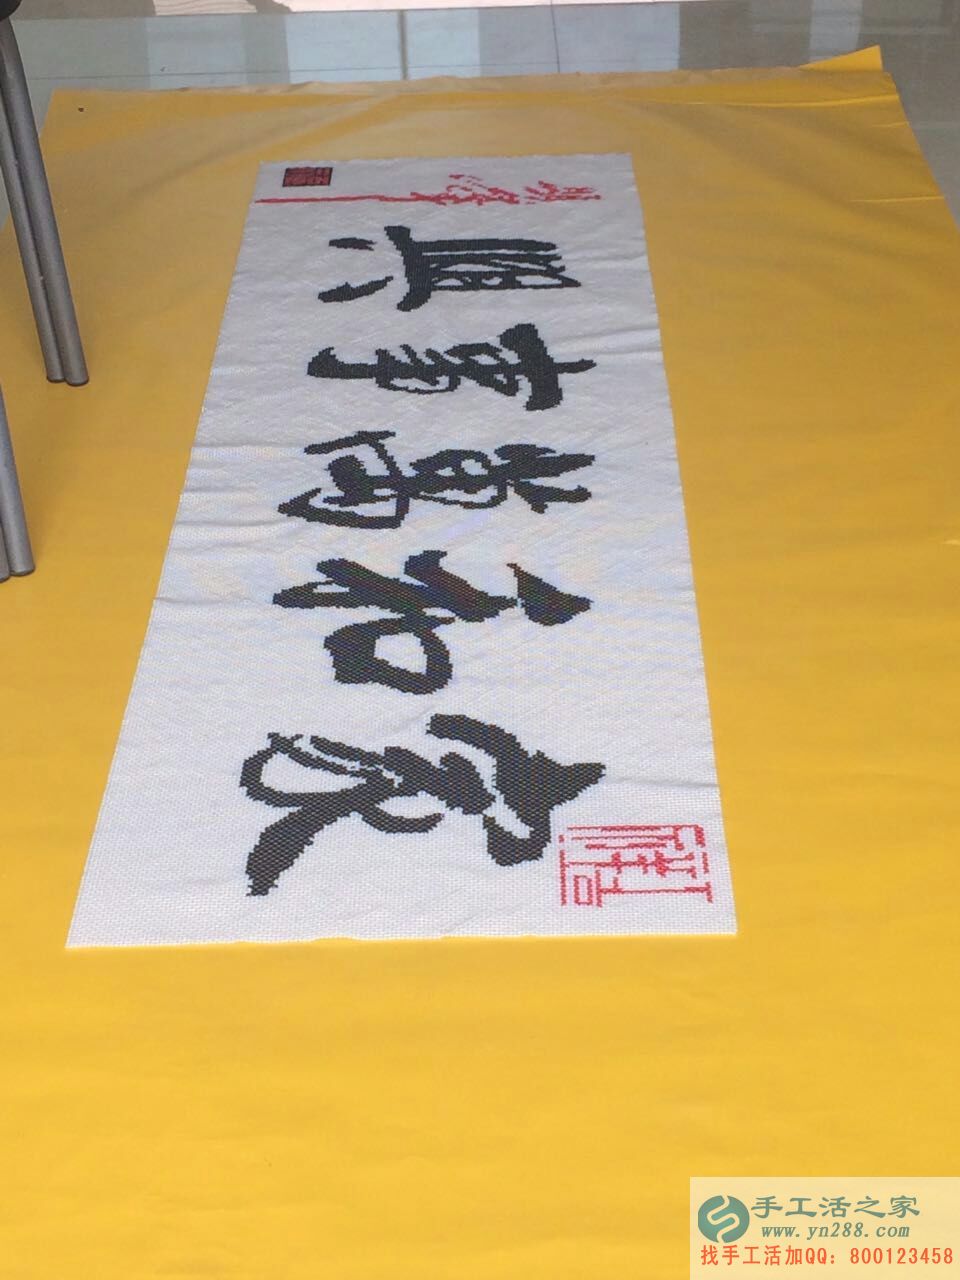 家和萬事興
手工活之家
www.yn288.com
找手工活加QQ：800123458